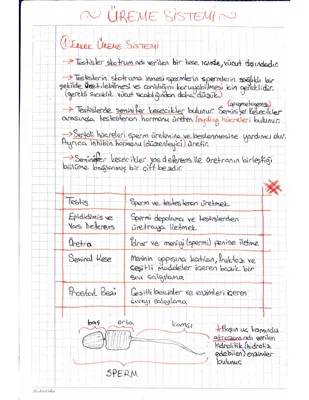 ~ ÜREME SİSTEMİ ~
① Erkek Üreme Sistemi
→ Testisler skrotum adı verilen bir kese içinde, vücut dışındadır.
→ Testislerin skrotuma inmesi spermlerin sağlıklı bir
şekilde üretilebilmesi ve canlılığın koruyabilmesi için gereklidir.
(gerekli sıcaklık vücut sıcaklığından daha düşük)
(spermatogenez)
→ Testislerde seminifer kesecikler bulunur. Seminifer kesecikler
arasında, testesteron hormonu üreten leydig hücreleri bulunur.
→ Sertoli hücreleri sperm üretimine ve beslenmesine yardımcı olur.
Ayrıca inhibin hormonu (düzenleyici) üretir.
→ Seminifer kesecikler vas deferens ile üretranın birleştiği
bölüme bağlanmış bir çift bezdir.
Testis
Sperm ve testesteron üretmek
Epididimis ve
Vas Deferens
Spermi depolama ve testislerden
üretraya iletmek
Üretra
İdrar ve meniyi (spermi) penise iletme
Seminal Kese
Meninin yapısına katılan, fruktoz ve
çeşitli maddeler içeren bazik bir
sıvı salgılama
Prostat Bezi
Çeşitli besinler ve enzimleri içeren
sıvıyı salgılama
baş orta kamçı
SPERM
Başın uç kısmında
akrozom adı verilen
hidrolitik (hidroliz
edebilen) enzimler
bulunur.